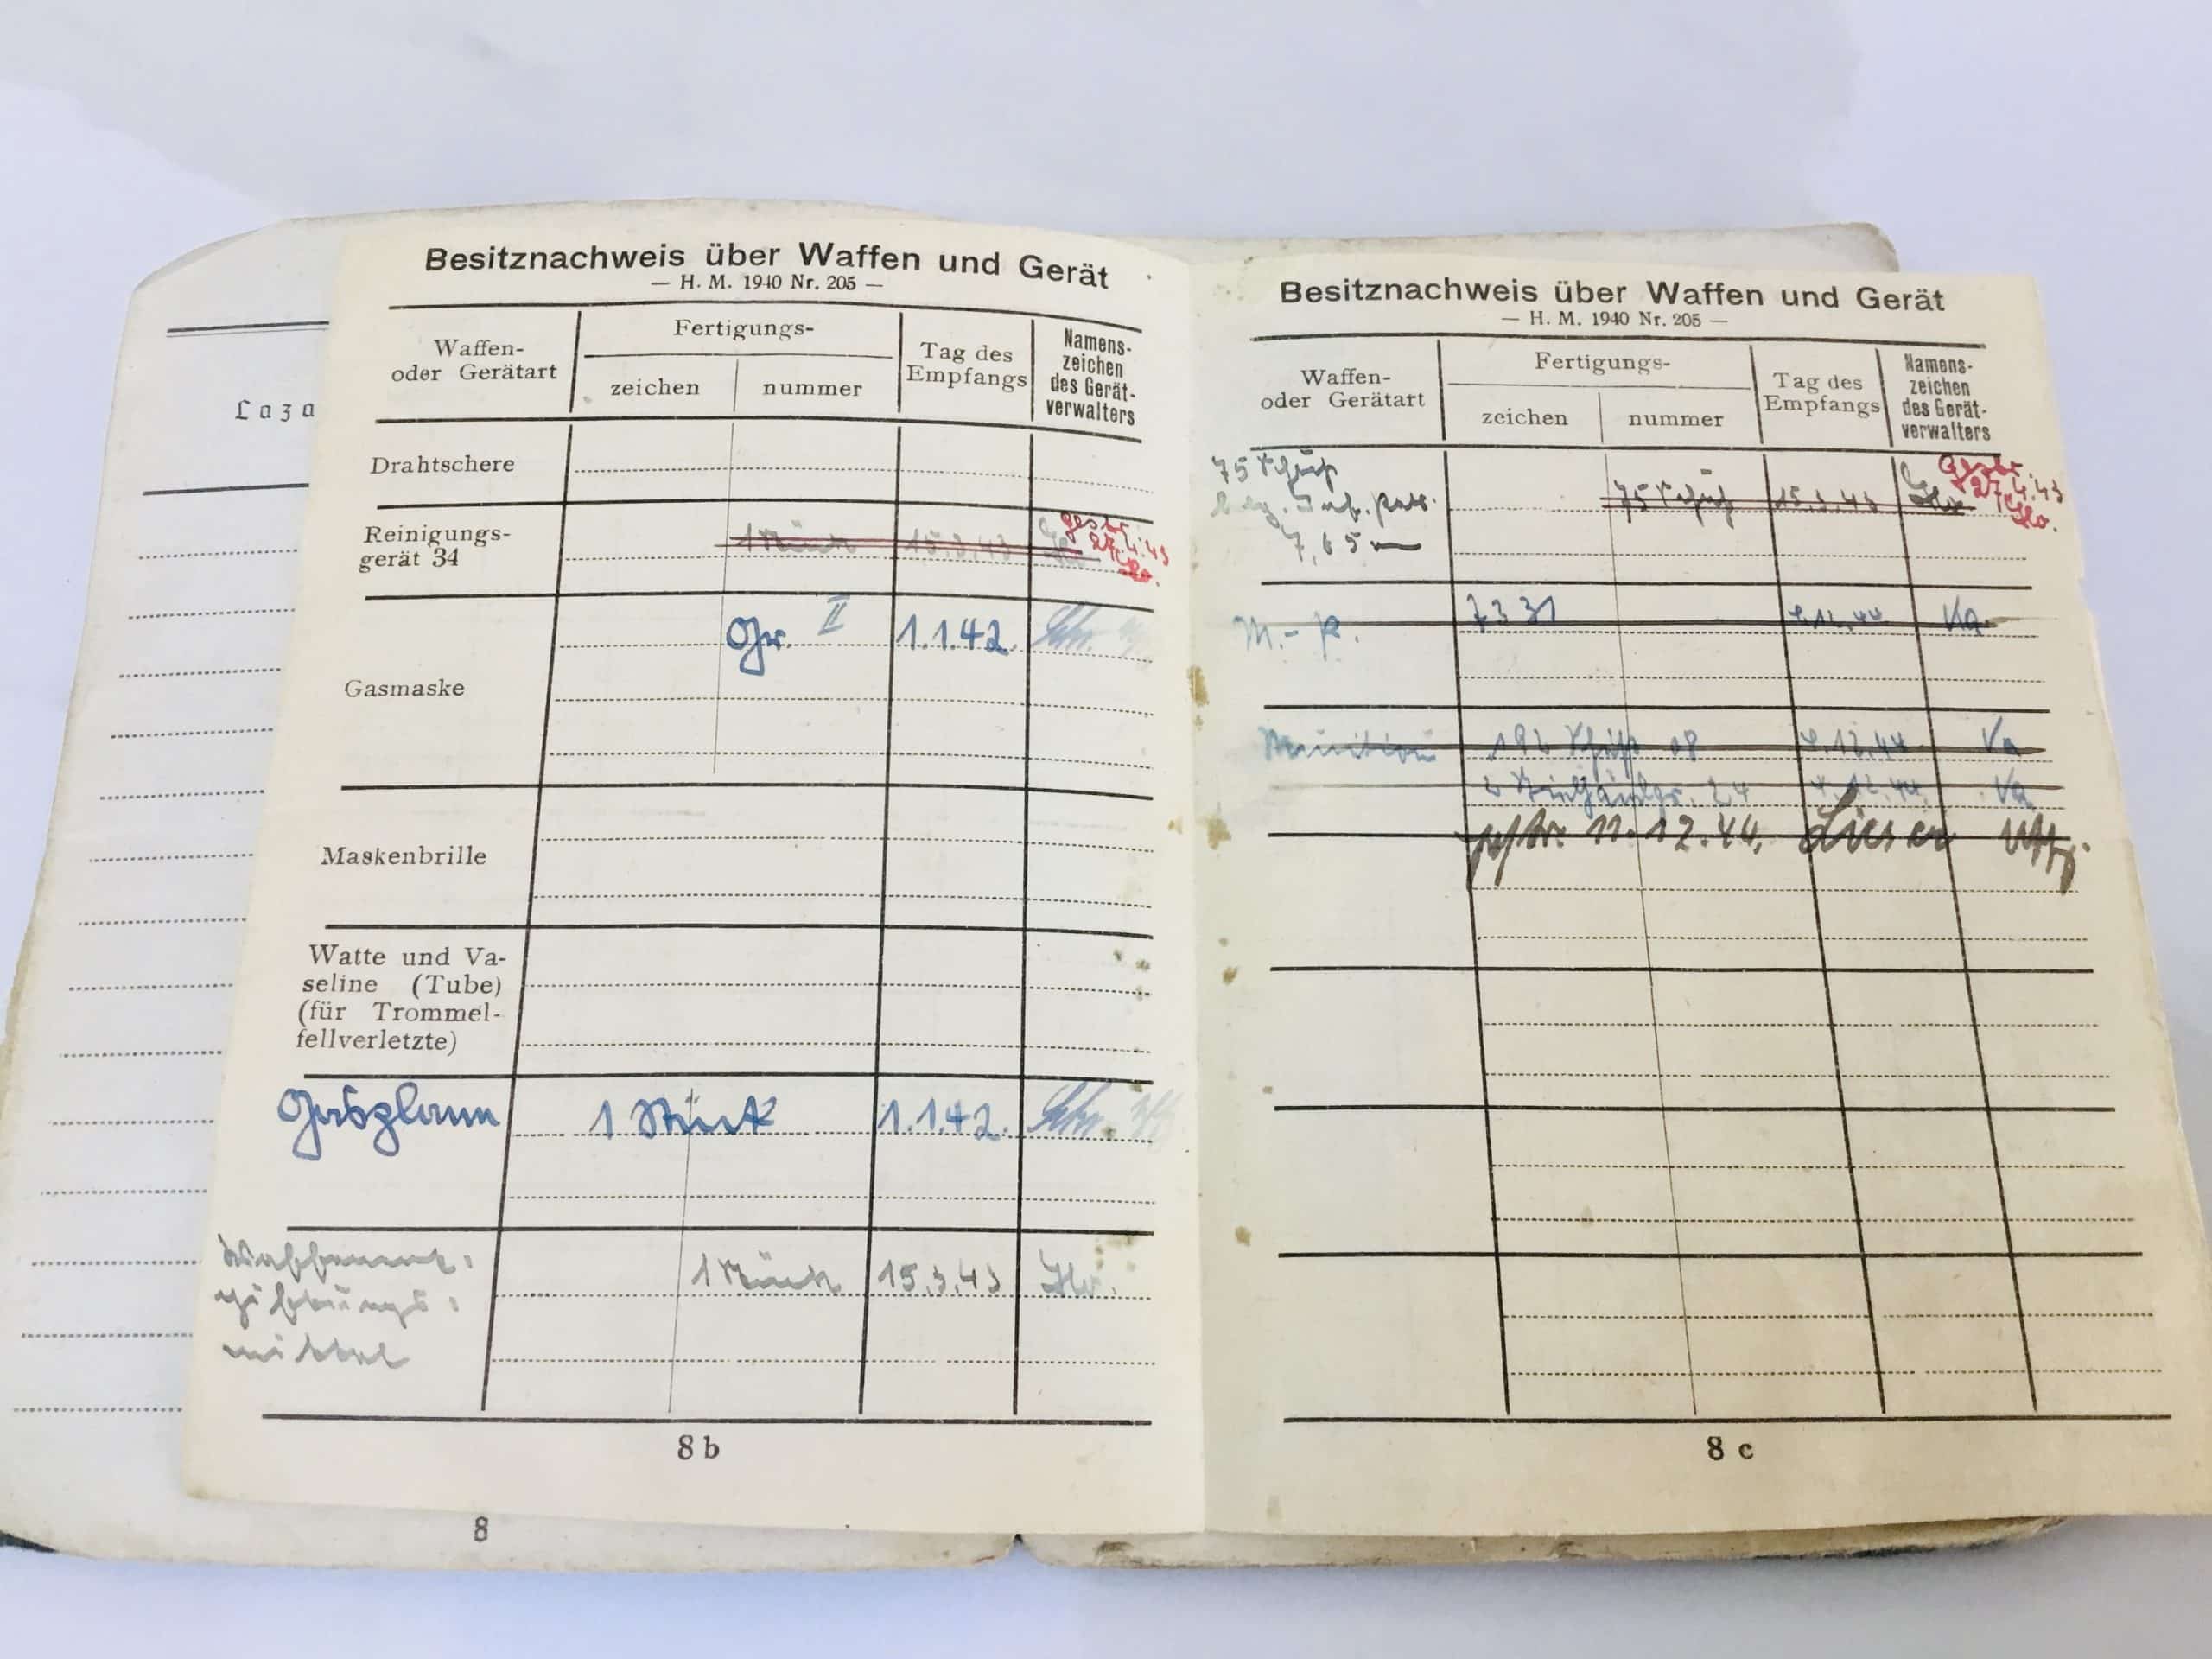 Laza
8
Besitznachweis über Waffen und Gerät
— H. M. 1940 Nr. 205 —
Waffen-
oder Gerätart
Fertigungs-
zeichen
nummer
Tag des
Empfangs
Namens-
zeichen
des Gerät-
verwalters
Drahtschere
Reinigungs-
gerät 34
1 Stück 15.3.43
gestr.
27.4.43
Gasmaske
Gr. II 1.1.42.
Maskenbrille
Watte und Va-
seline (Tube)
(für Trommel-
fellverletzte)
Gasplane 1 Stück 1.1.42.
1 Stück 15.3.43
mittel
8 b
Besitznachweis über Waffen und Gerät
— H. M. 1940 Nr. 205 —
Waffen-
oder Gerätart
Fertigungs-
zeichen
nummer
Tag des
Empfangs
Namens-
zeichen
des Gerät-
verwalters
75 Schuß
Inf. Patr.
7,65
75 Schuß 15.3.43
gestr.
27.4.43
M.-P. 7331 Va
Munition 192 Schuß 08 4.12.44 Va
2 24 4.12.44. Va
gestr. 11.12.44. Uffz.
8 c